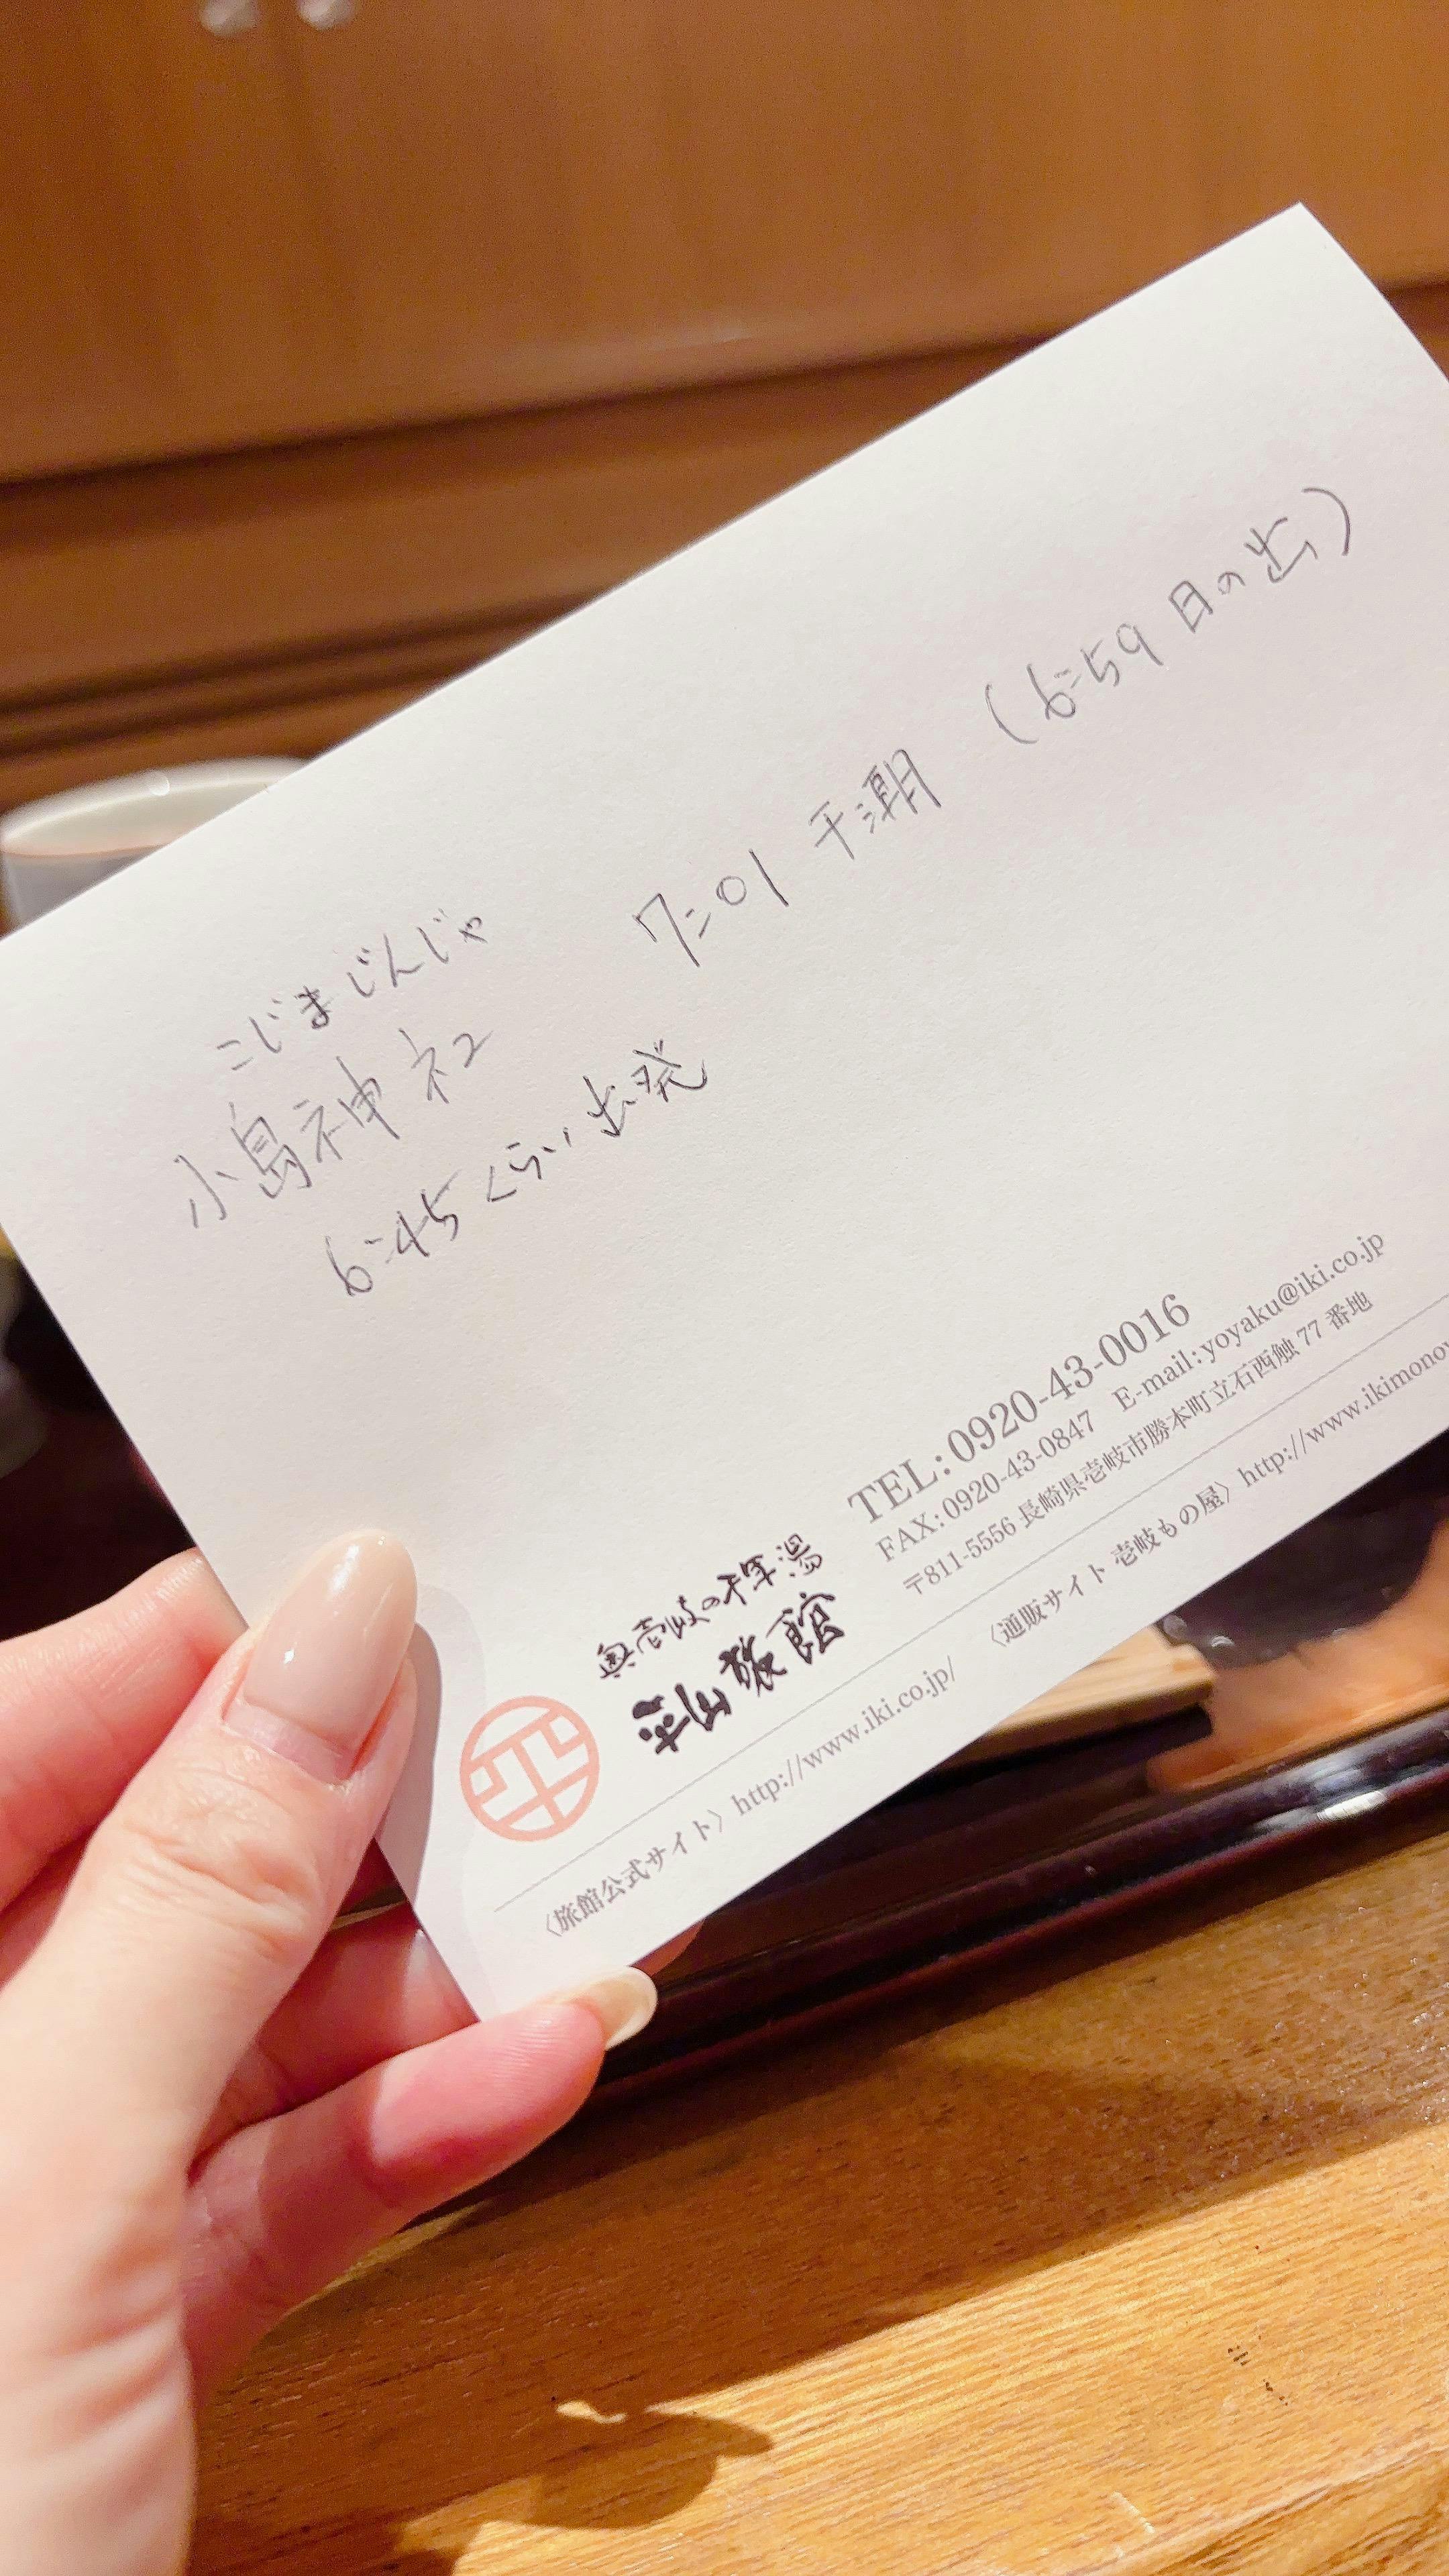 こじまじんじゃ
小島神社 7:01 干潮 (6:59 日の出)
6:45 くらい 出発
奥壱岐の千年湯
平山旅館
TEL:0920-43-0016
FAX:0920-43-0847 E-mail:yoyaku@iki.co.jp
〒811-5556 長崎県壱岐市勝本町立石西触 77 番地
〈旅館公式サイト〉http://www.iki.co.jp/ 〈通販サイト 壱岐もの屋〉http://www.ikimono